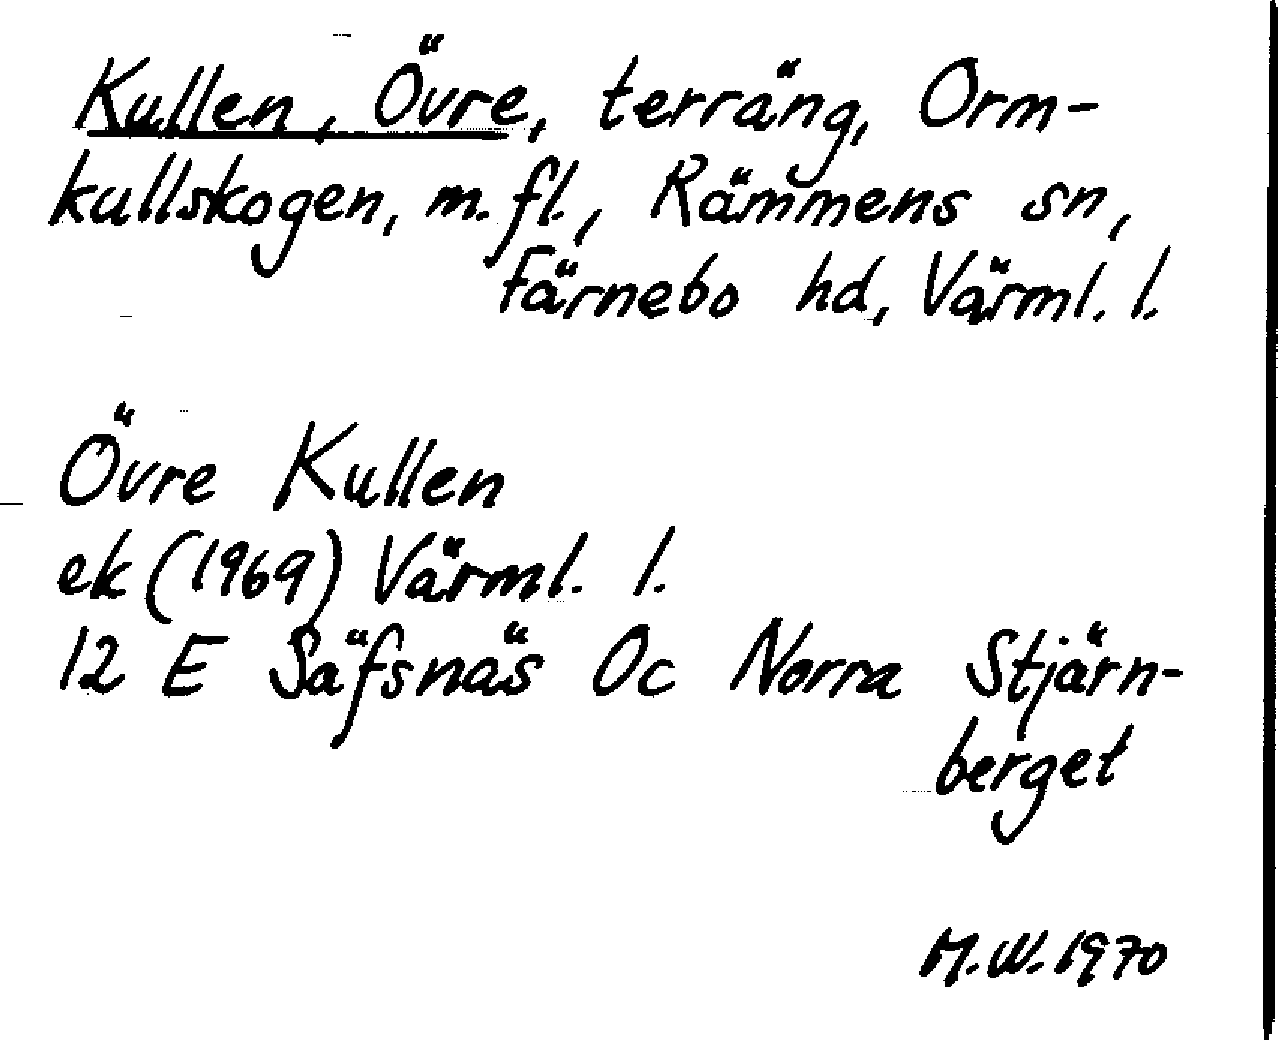 Kullen, Övre, terräng, Orm-
kullskogen, m.fl., Rämmens sn,
Färnebo hd, Värml. l.
Övre Kullen
ek (1969) Värml. l.
12 E Säfsnäs Oc Norra Stjärn-
berget
M.W. 1970